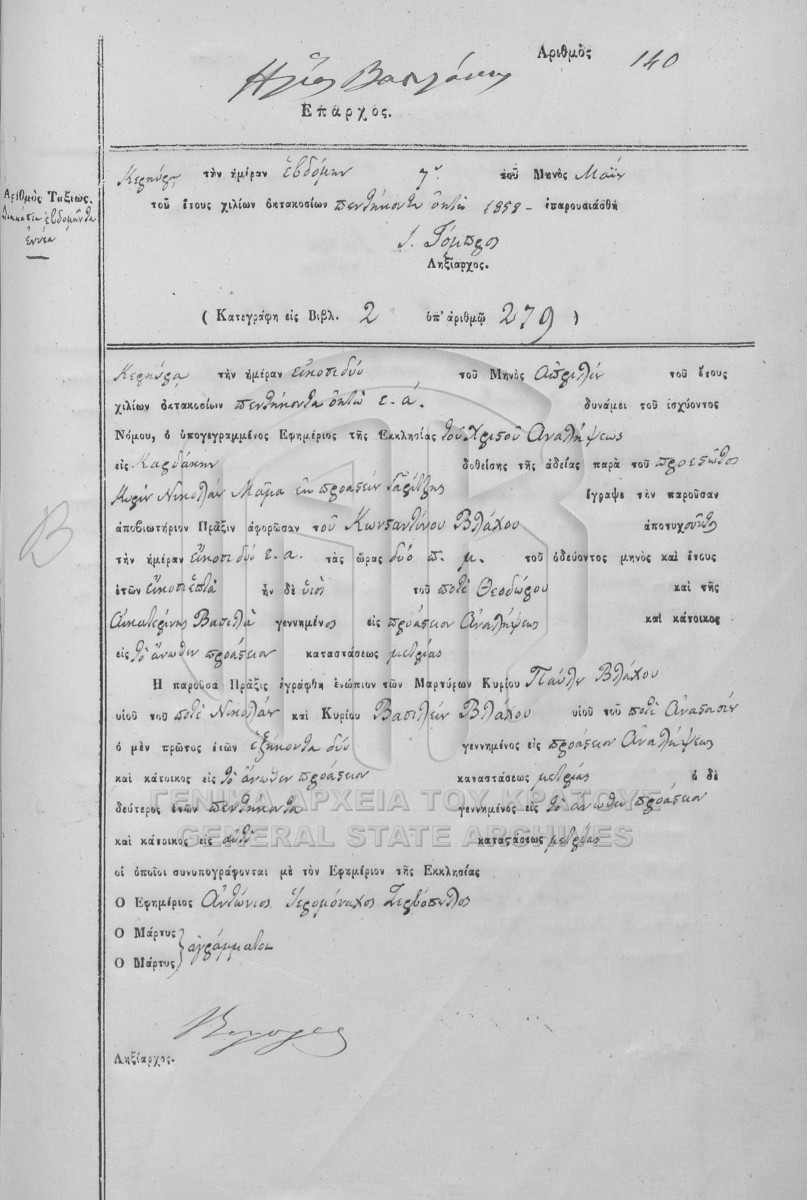 Αριθμὸς 140
Ἠλίας Βασιλάκης
Επαρχος.
Κερκύρᾳ τὴν ἡμέραν ἑβδόμην 7ην τοῦ Μηνὸς Μαΐου
Αριθμὸς Ταξεως.
Διακόσια ἑβδομῆντα
ἐννέα
τοῦ ἔτους χιλίων ὀκτακοσίων πεντήκοντα ὀκτὼ 1858 - ἐπαρουσιάσθη
Ληξίαρχος.
( Κατεγράφη εἰς Βιβλ. 2 ὑπ᾽ ἀριθμῷ 279 )
Κερκύρᾳ τὴν ἡμέραν εἴκοσι δύο τοῦ Μηνὸς Ἀπριλίου τοῦ ἔτους
χιλίων ὀκτακοσίων πεντήκοντα ὀκτὼ ε. ἀ. δυνάμει τοῦ ἰσχύοντος
Νόμου, ὁ ὑπογεγραμμένος Εφημέριος τῆς Εκκλησίας τοῦ Χριστοῦ Ἀναλήψεως
εἰς Καρδάκην δοθείσης τῆς ἀδείας παρὰ τοῦ προεστῶτος
Κυρίου Νικολάου Μάμα ἐκ προαστείου Γαρίτζης ἔγραψε τὴν παροῦσαν
ἀποβιωτήριον Πρᾶξιν ἀφορῶσαν τοῦ Κωνσταντίνου Βλάχου ἀποτυχοῦντος
τὴν ἡμέραν εἴκοσι δύο ε. ἀ. τὰς ὥρας δύο π. μ. τοῦ ὁδεύοντος μηνὸς καὶ ἔτους
ἐτῶν εἴκοσι ἑπτὰ ἦν δὲ υἱὸς τοῦ ποτὲ Θεοδώρου καὶ τῆς
Αἰκατερίνης Βασιλᾶ γεννημένος εἰς προάστειον Ἀναλήψεως καὶ κάτοικος
εἰς τὸ ἄνωθεν προάστειον καταστάσεως μετρίας
Η παροῦσα Πρᾶξις ἐγράφθη ἐνώπιον τῶν Μαρτύρων Κυρίου Παύλου Βλάχου
υἱοῦ τοῦ ποτὲ Νικολάου καὶ Κυρίου Βασιλείου Βλάχου υἱοῦ τοῦ ποτὲ Ἀναστασίου
ὁ μὲν πρῶτος ἐτῶν ἑξήκοντα δύο γεννημένος εἰς προάστειον Ἀναλήψεως
καὶ κάτοικος εἰς τὸ ἄνωθεν προάστειον καταστάσεως μετρίας ὁ δὲ
δεύτερος ἐτῶν πεντήκοντα γεννημένος εἰς τὸ ἄνωθεν προάστειον
καὶ κάτοικος εἰς αὐτὸ καταστάσεως μετρίας
οἱ ὁποῖοι συνυπογράφονται μὲ τὸν Εφημέριον τῆς Εκκλησίας
Ο Εφημέριος Ἀντώνιος Ἱερομόναχος Ζερβόπουλος
Ο Μάρτυς
ἀγράμματοι
Ο Μάρτυς
Ληξίαρχος.
Β
ΓΕΝΙΚΑ ΑΡΧΕΙΑ ΤΟΥ ΚΡΑΤΟΥΣ
GENERAL STATE ARCHIVES